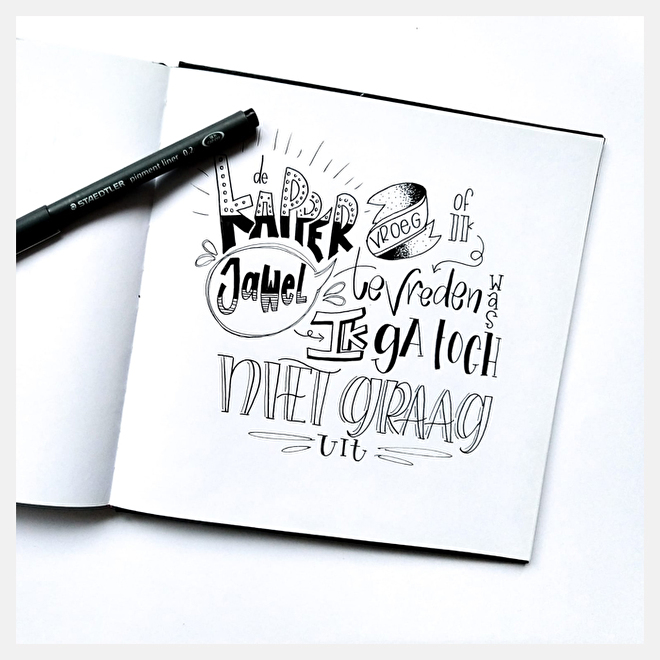 STAEDTLER pigment liner 0.2
de
KAPPER VROEG of IK
Jawel tevreden was
IK gA tOCH
NIET GRAAG
uit